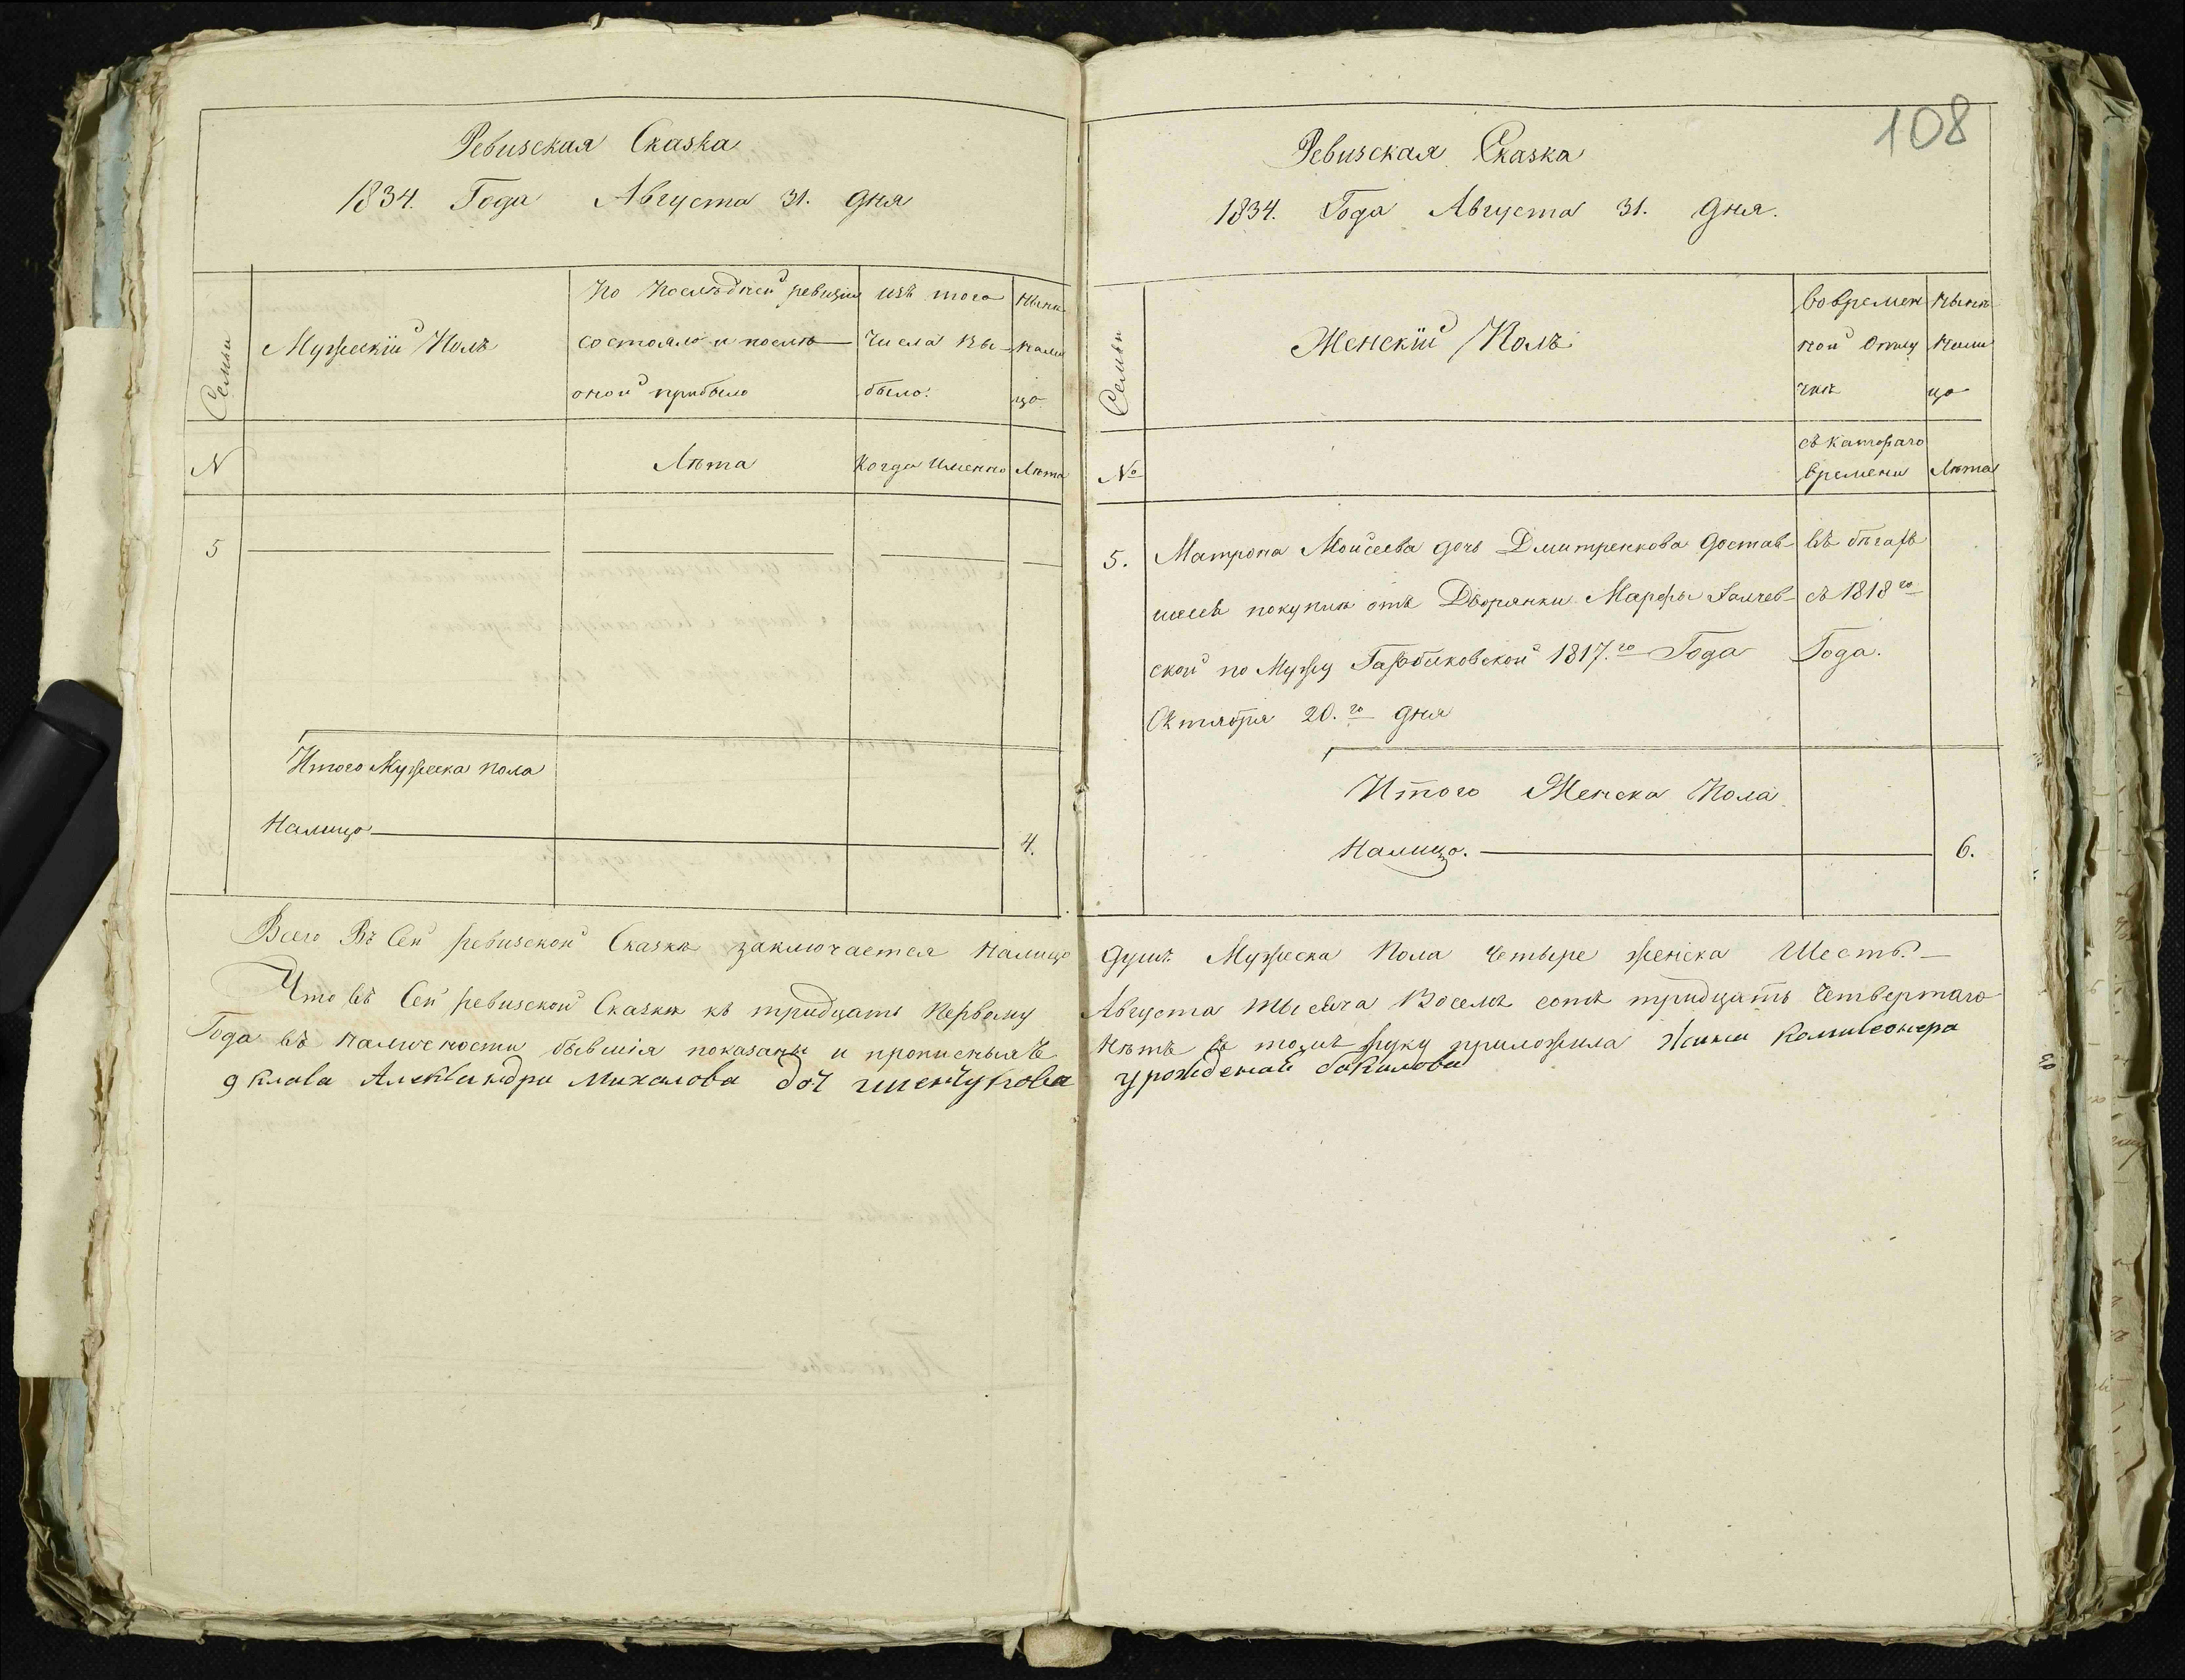 108
Ревизская Сказка
1834. Года Августа 31. дня
Семьи
Мужескій Полъ
По Последней ревизіи
состояло и после
оной прибыло
изъ того
Числа вы-
было.
Ныне
нали
цо
N
Лета
Когда Именно
Лета
5
Итого Мужеска пола
Налицо
4.
Ревизская Сказка
1834. Года Августа 31. дня.
Семьи
Женскій Полъ
Во времен
ной Отлу
чке
Ныне
нали
цо
№
съ катораго
времени
Лета
5. Матрона Моисеева дочь Дмитренкова достав
шеесь покупки отъ Дворянки Марфы
ской по Мужу 1817.го Года
Октября 20.го дня
въ бегахъ
съ 1818го
Года.
Итого Женска Пола
Налицо.
6.
Всего Въ Сей ревизской Сказке заключается Налицо душъ Мужеска Пола четыре женска Шесть.
Что въ Сей ревизской Сказке къ тридцать Первому Августа тысяча Восемъ сотъ тридцать Четвертаго
Года въ наличности бывшія показаны и нетъ въ томъ руку приложила Жина
Александри Михалова доч урожденай